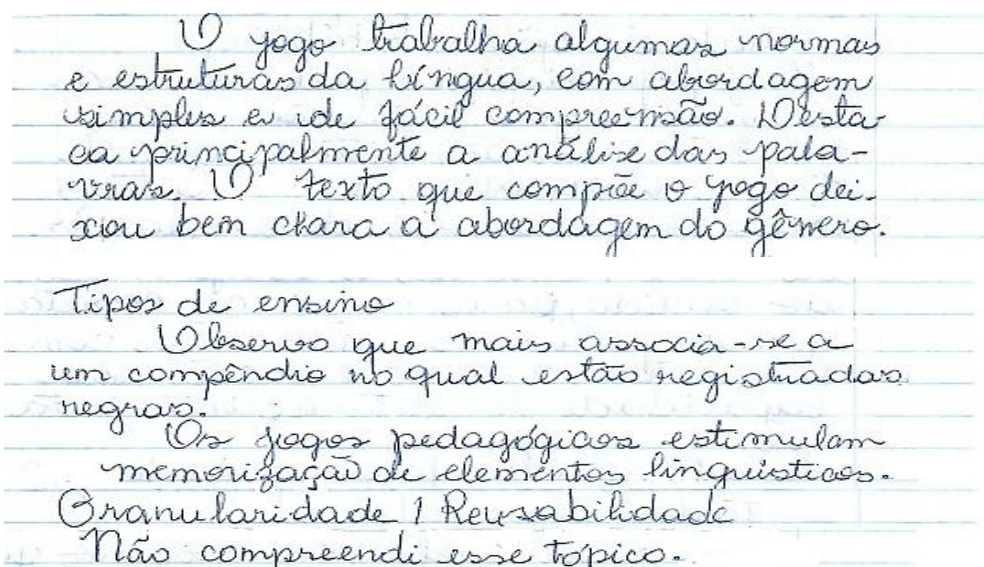 O jogo trabalha algumas normas
e estruturas da língua, com abordagem
simples e de fácil compreensão. Desta-
ca principalmente a análise das pala-
vras. O texto que compõe o jogo dei-
xou bem clara a abordagem do gênero.
Tipos de ensino
Observo que mais associa-se a
um compêndio no qual estão registradas
regras.
Os jogos pedagógicos estimulam
memorização de elementos linguísticos.
Granularidade / Reusabilidade
Não compreendi esse tópico.